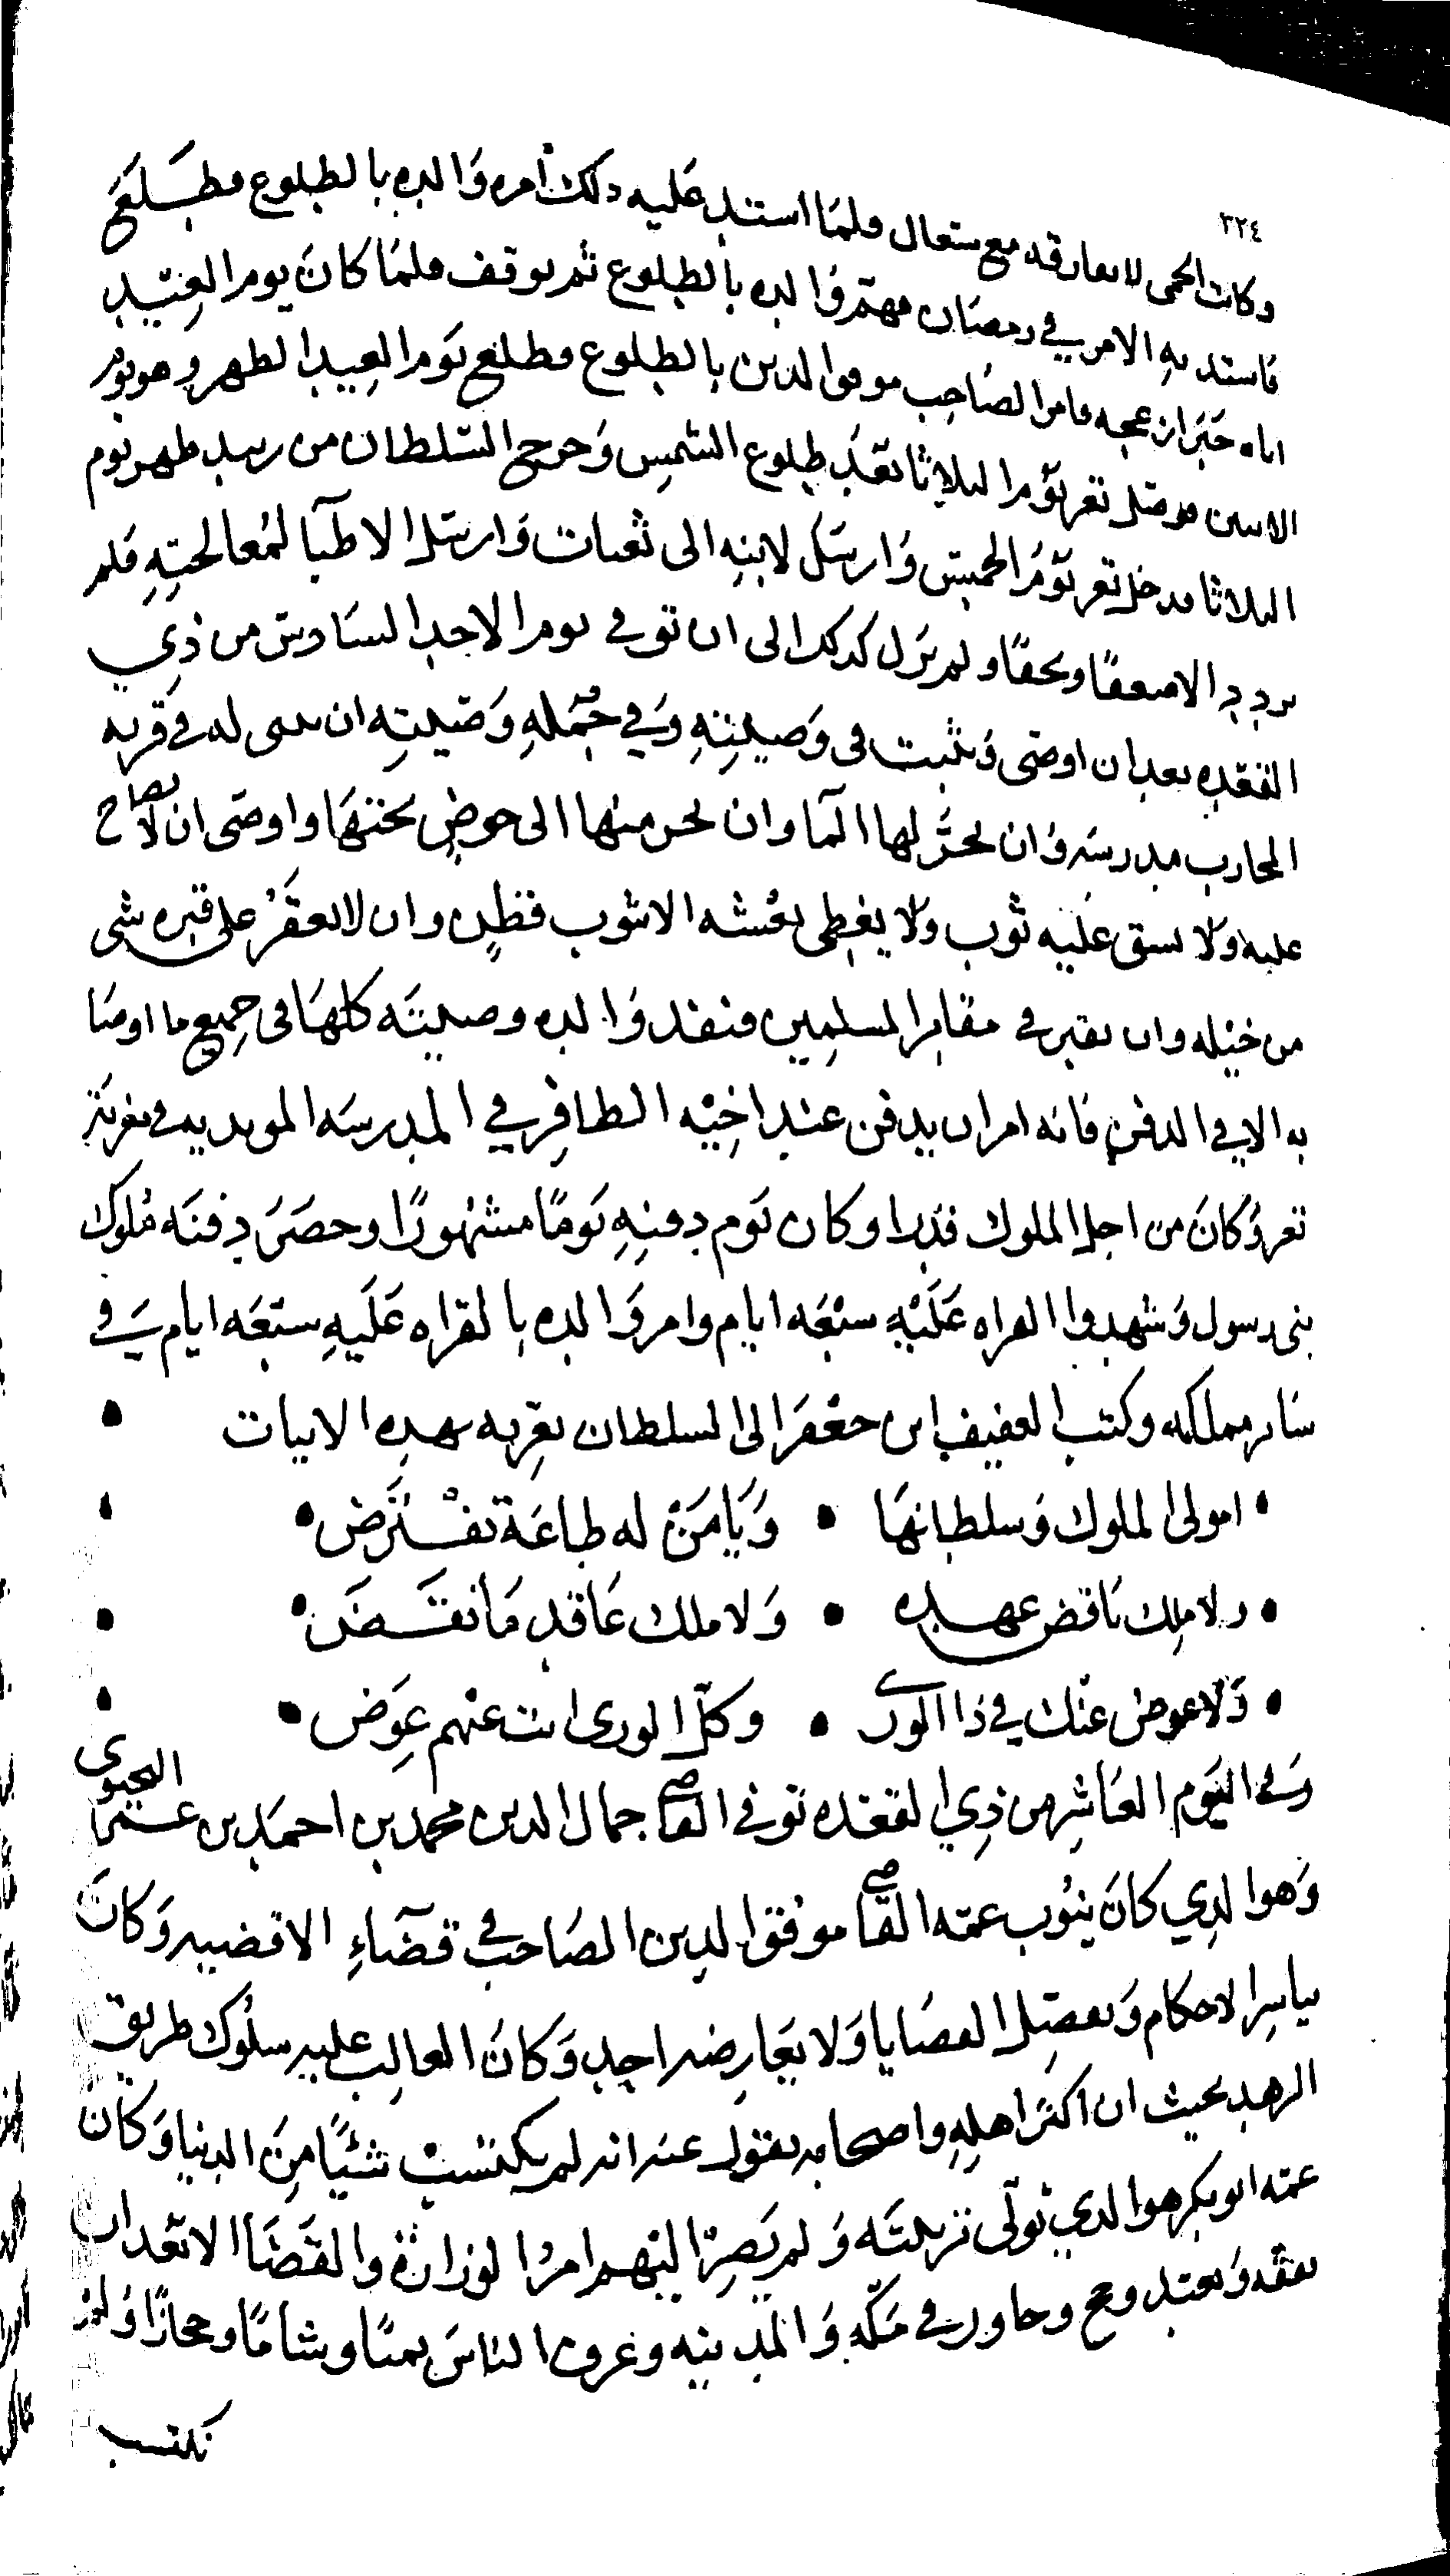 ٣٢٤
وكانت الحمى لا تفارقه مع سعال فلما اشتد عليه ذلك أمره والده بالطلوع فطلع
فاشتد به الامر في رمضان فهتم والده بالطلوع ثم توقف فلما كان يوم العيد
اتاه خبر ازعجه فامر الصاحب موفق الدين بالطلوع فطلع يوم العيد الظهر وهو يوم
الاثنين فوصل تعز يوم الثلاثا بعد طلوع الشمس وخرج السلطان من زبيد ظهر يوم
الثلاثا فدخل تعز يوم الخميس وارسل لابنه الى ثعبات وارسل الاطبا لمعالجته فلم
يزدد الا ضعفا ونحفا ولم يزل كذلك الى ان توفي يوم الاحد السادس من ذي
القعده بعد ان اوصى وتثبت في وصيته وفي جمله وصيته ان يبنى له في قريه
المحارب مدرسه وان يجر لها الما وان يجر منها الى حوض تحتها واوصى ان لا يصاح
عليه ولا يشق عليه ثوب ولا يغطى نعشه الا بثوب قطن وان لا يعقر على قبره شي
من خيله وان يقبر في مقابر المسلمين فنفذ والده وصيته كلها في جميع ما اوصا
به الا في الدفن فانه امر ان يدفن عند اخيه الظافر في المدرسه المويديه في مغربة
تعز وكان من اجل الملوك قدرا وكان يوم دفنه يوما مشهورا وحضر دفنه ملوك
بني رسول وشهدوا القراه عليه سبعه ايام وامر والده بالقراه عليه سبعه ايام في
سائر مملكته وكتب العفيف ابن جعفر الى السلطان يعزيه بهذه الابيات
امولى الملوك وسلطانها • ويا من له طاعة تفترض
ولا ملك ناقض عهده • ولا ملك عاقد ما نقض
ولا عوض عنك في ذا الورى • وكل الورى انت عنهم عوض
وفي اليوم العاشر من ذي القعده توفي القاضي جمال الدين محمد بن احمد بن عمر اليحيوي
وهو الذي كان ينوب عمه القاضي موفق الدين الصاحب في قضاء الاقضيه وكان
يباشر الاحكام ويفصل القضايا ولا يعارضه احد وكان الغالب عليه سلوك طريق
الزهد بحيث ان اكثر اهله واصحابه يقول عنه انه لم يكتسب شيئا من الدنيا وكان
عمه ابو بكر هو الذي تولى تربيته ولم يصر اليهم امر الوزارة والقضا الا بعد ان
تفقه وتعبد وحج وجاور في مكه والمدينه وعرف الناس يمنا وشاما وحجازا ولم
يكتسب